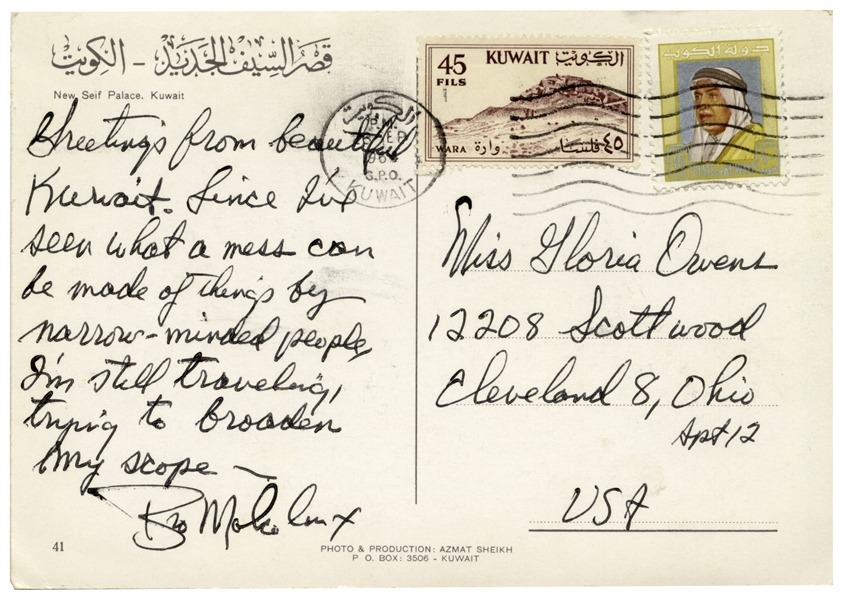 قصر السيف الجديد - الكويت
New Seif Palace. Kuwait
Greetings from beautiful
Kuwait. Since I've
seen what a mess can
be made of things by
narrow-minded people,
I'm still traveling,
trying to broaden
my scope —
Bro Malcolm X
41
45
FILS
KUWAIT الكويت
WARA وارة
٤٥ فلسا
دولة الكويت
الكويت
SEP
196
G.P.O.
KUWAIT
Miss Gloria Owens
12208 Scottwood
Cleveland 8, Ohio
Apt 12
USA
PHOTO & PRODUCTION: AZMAT SHEIKH
P O. BOX: 3506 - KUWAIT